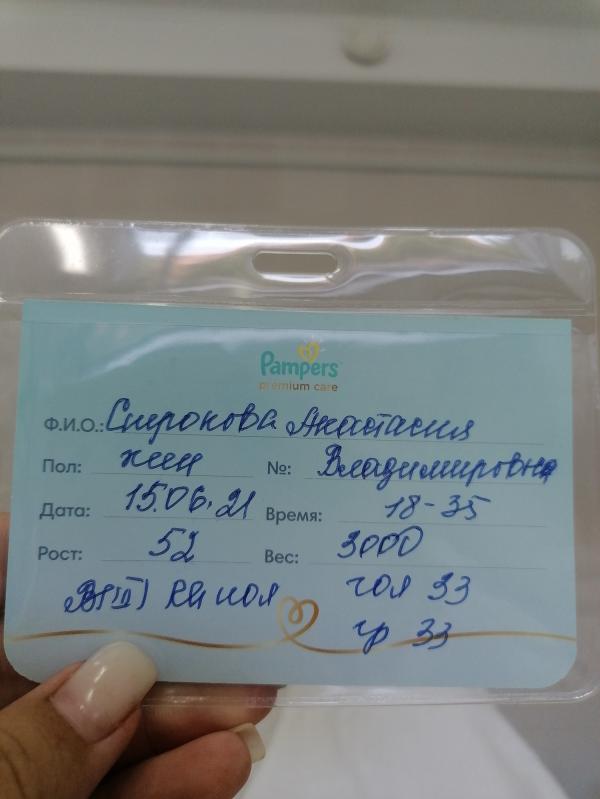 Pampers
premium care
Ф.И.О.: Широкова Анастасия
Пол: жен №: Владимировна
Дата: 15.06.21 Время: 18-35
Рост: 52 Вес: 3000
гол 33
гр 33